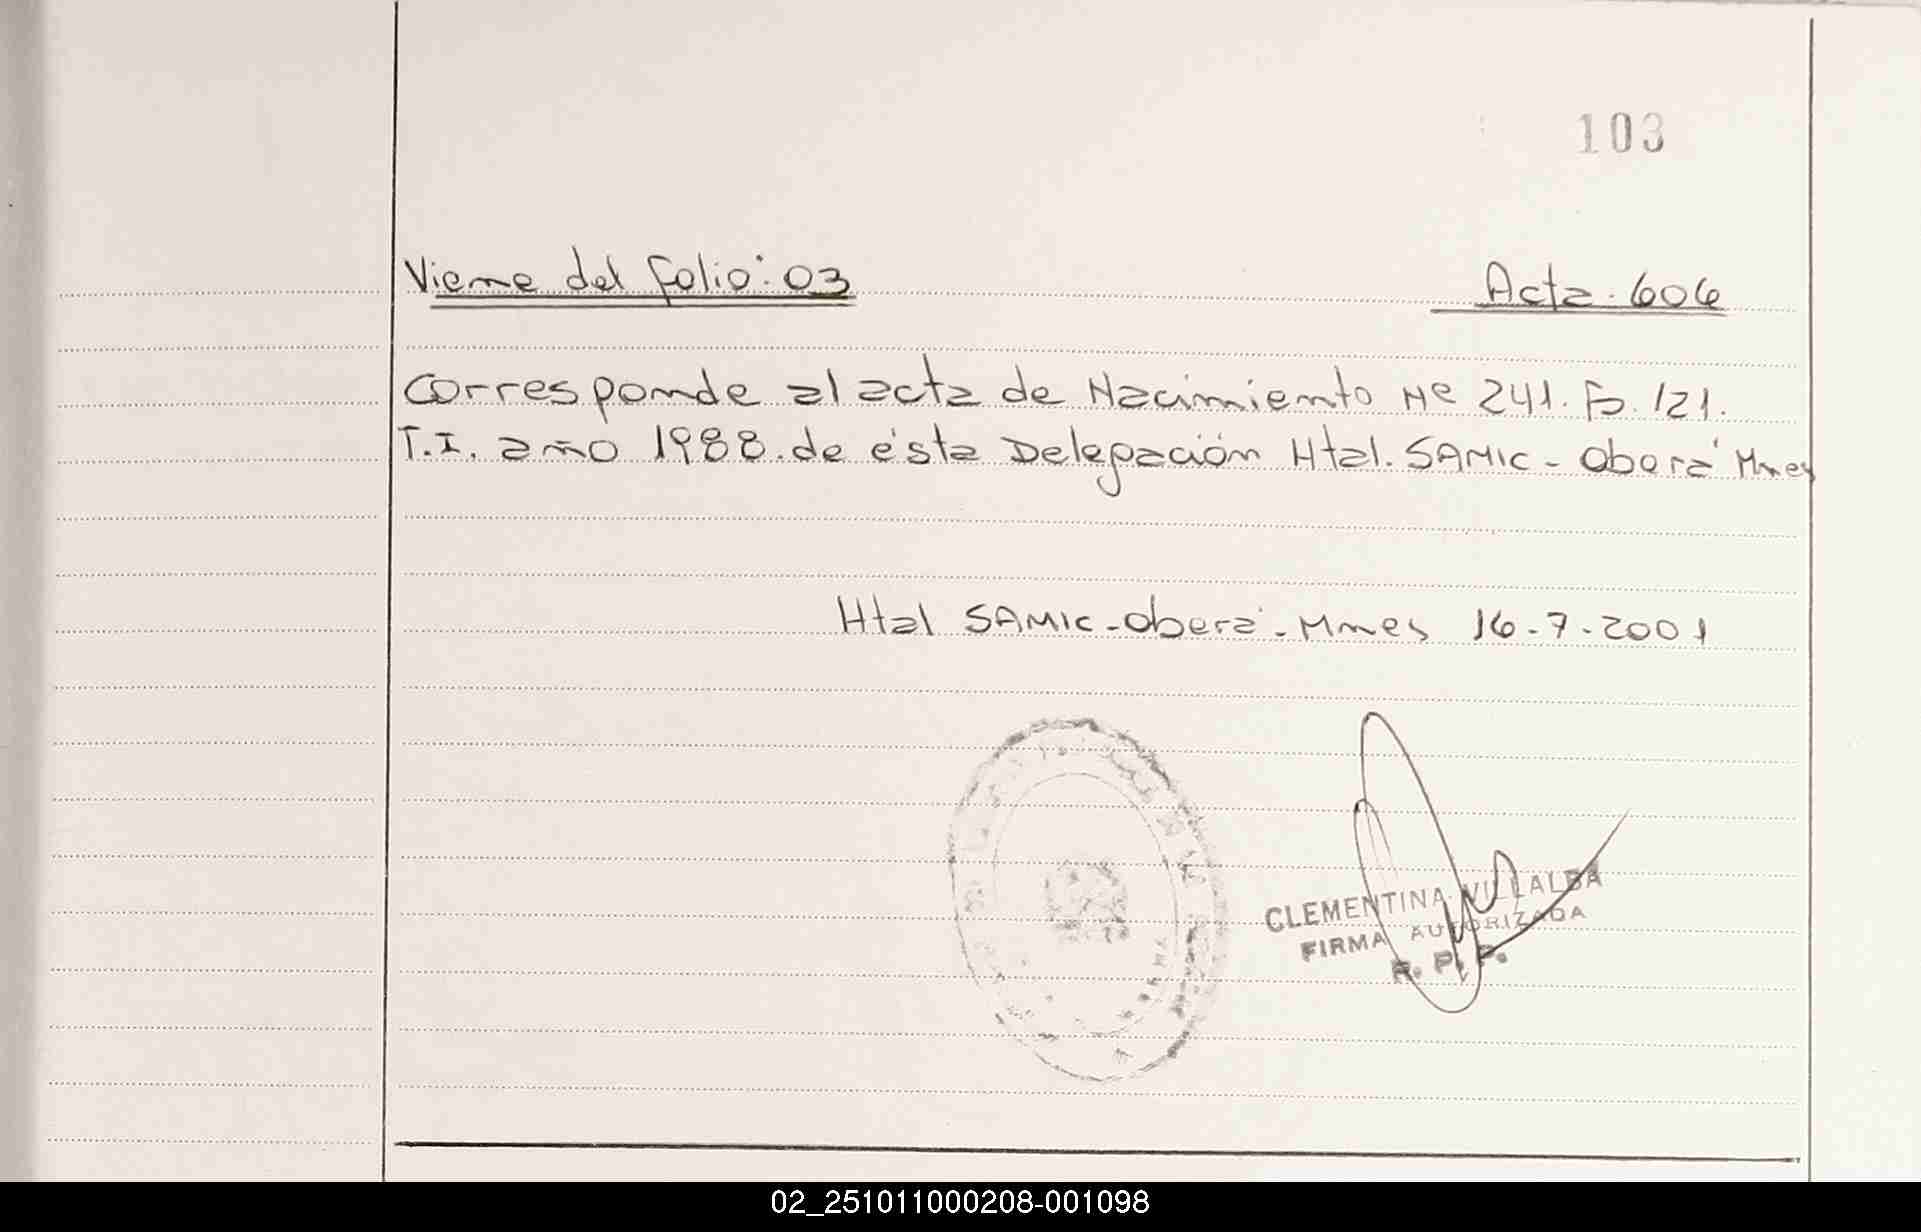 103
Viene del folio: 03 Acta. 606
Corresponde al acta de Nacimiento Nº 241. Fº. 121.
T.I. año 1988. de ésta Delegación Htal. SAMIC - Oberá Mnes
Htal SAMIC - Oberá - Mnes 16-7-2001
CLEMENTINA VILLALBA
FIRMA AUTORIZADA
R. P. P.
02_251011000208-001098